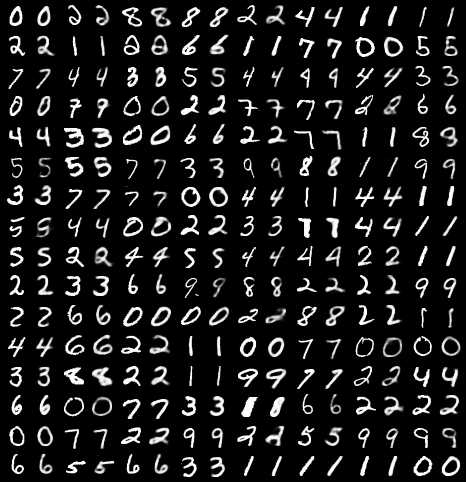 0 0 2 2 8 8 8 8 2 2 4 4 1 1 1 1
2 2 1 1 2 2 6 6 1 1 7 7 0 0 5 5
7 7 4 4 3 3 5 5 4 4 9 9 4 4 3 3
0 0 7 9 0 0 2 2 7 7 7 7 2 2 6 6
4 4 3 3 0 0 6 6 2 2 7 7 1 1 8 8
5 5 5 5 7 7 3 3 9 9 8 8 1 1 9 9
3 3 7 7 7 7 0 0 4 4 1 1 4 4 1 1
5 8 4 4 0 0 2 2 3 3 1 1 4 4 1 1
5 5 2 2 4 4 5 5 4 4 4 4 2 2 1 1
2 2 3 3 6 6 9 9 8 8 2 2 2 2 9 9
2 2 6 6 0 0 0 0 2 2 8 8 2 2 1 1
4 4 6 6 2 2 1 1 0 0 7 7 0 0 0 0
3 3 8 8 2 2 1 1 9 9 7 7 2 2 4 4
6 6 0 0 7 7 3 3 1 1 6 6 2 2 2 2
0 0 7 7 2 2 9 9 2 2 5 5 9 9 9 9
6 6 5 5 6 6 3 3 1 1 1 1 1 1 0 0